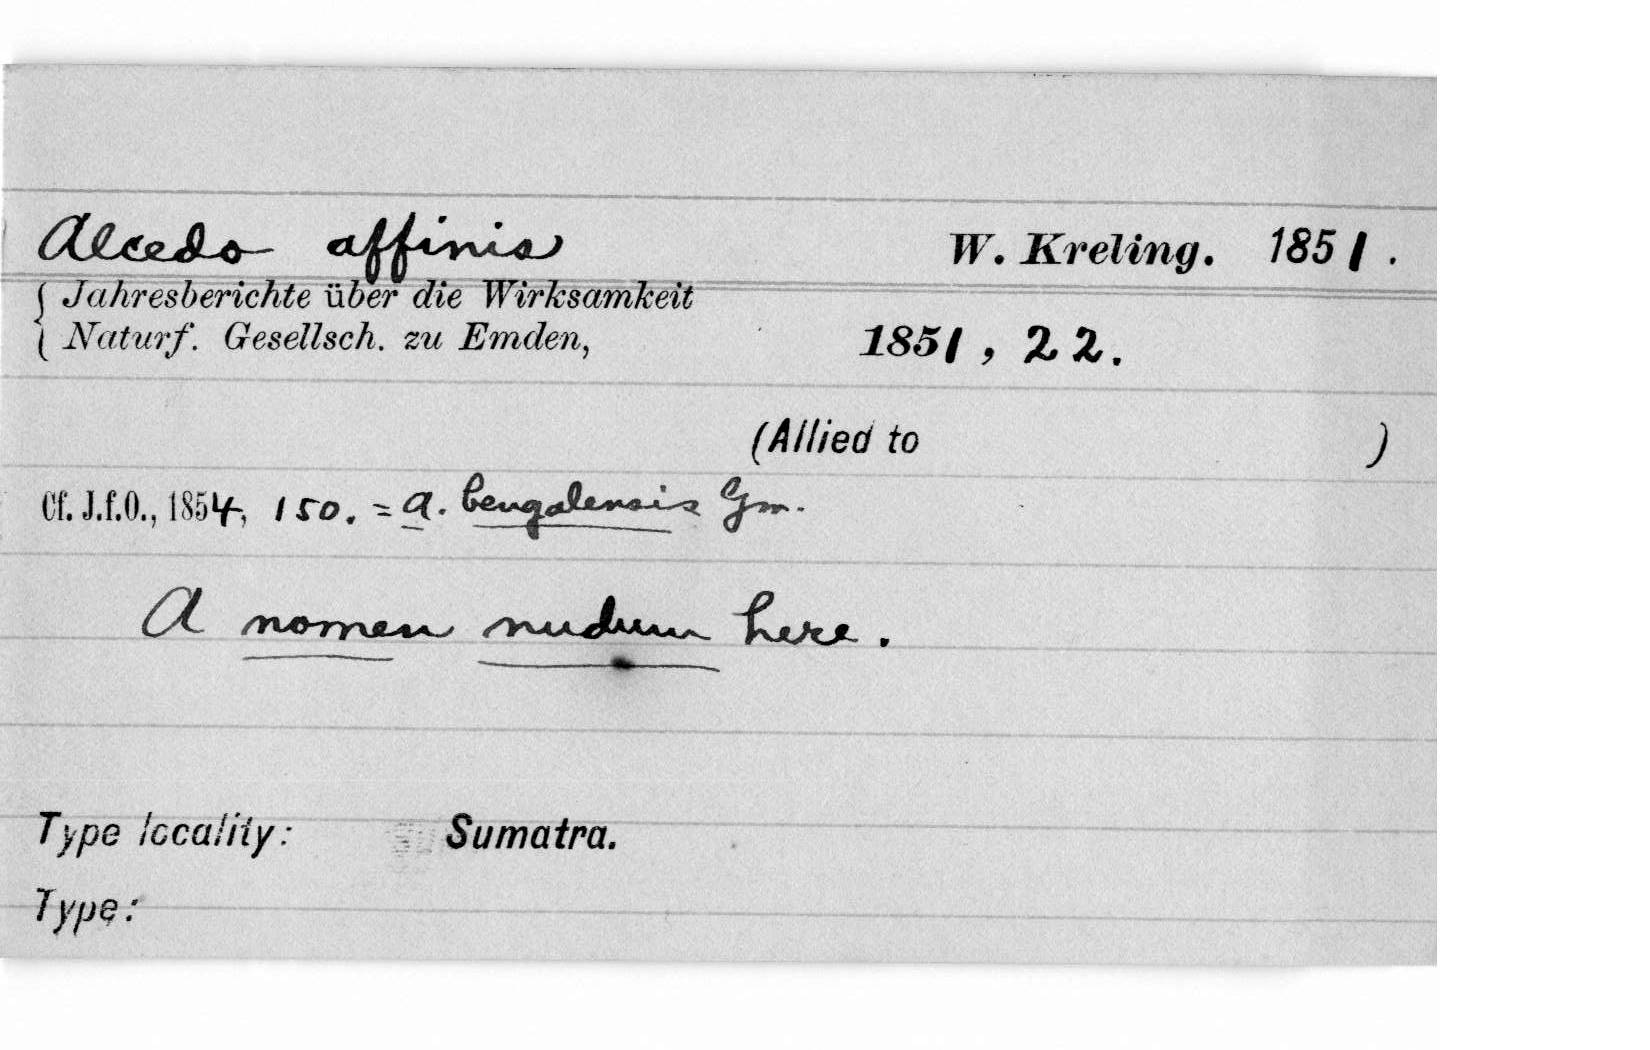 Alcedo affinis W. Kreling. 1851.
Jahresberichte über die Wirksamkeit
Naturf. Gesellsch. zu Emden, 1851, 22.
(Allied to )
Cf. J.f.O., 1854, 150. = A. bengalensis Gm.
A nomen nudum here.
Type locality: Sumatra.
Type: